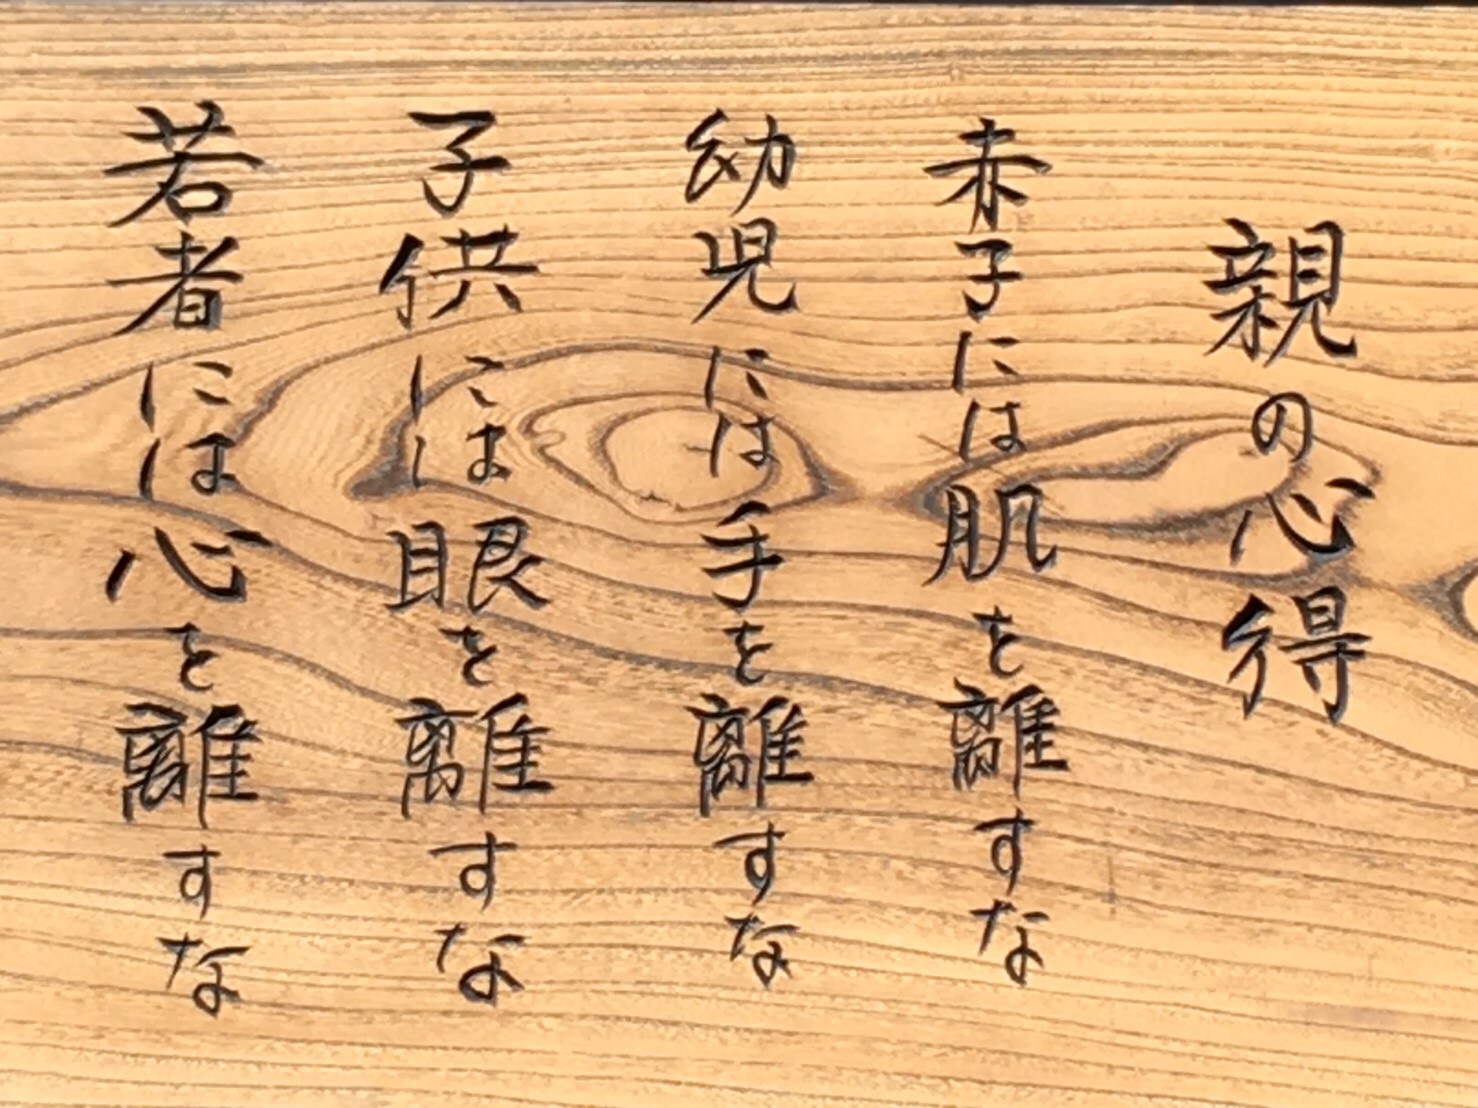 親の心得
赤子には肌を離すな
幼児には手を離すな
子供には眼を離すな
若者には心を離すな